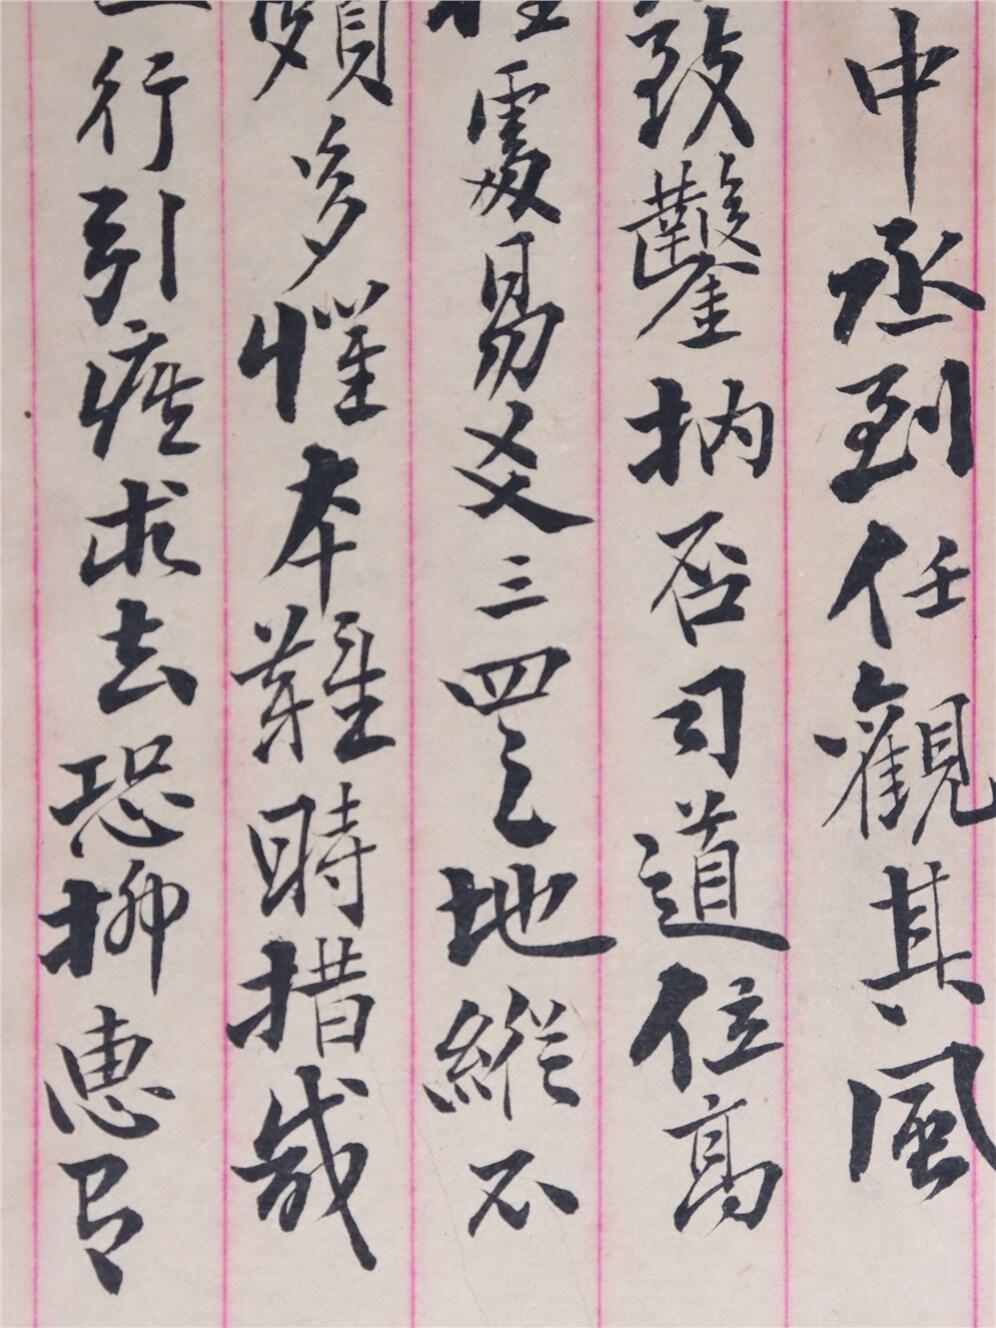 中丞到任觀其風
致鑿枘否司道位高
處易爻三四之地縱不
頗多懼本難時措哉
行引疾求去恐抑惠